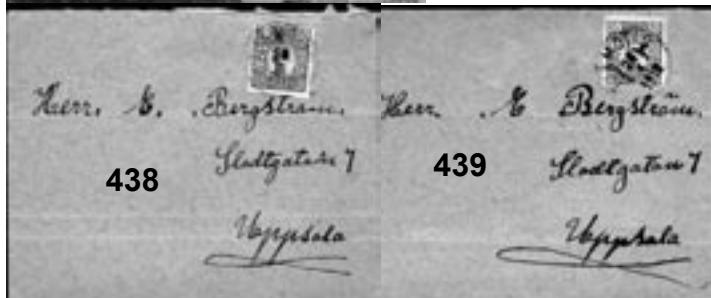 Herr. E. Bergström.
Slottgatan 7
438
Uppsala
Herr. E Bergström.
Slottgatan 7
439
Uppsala